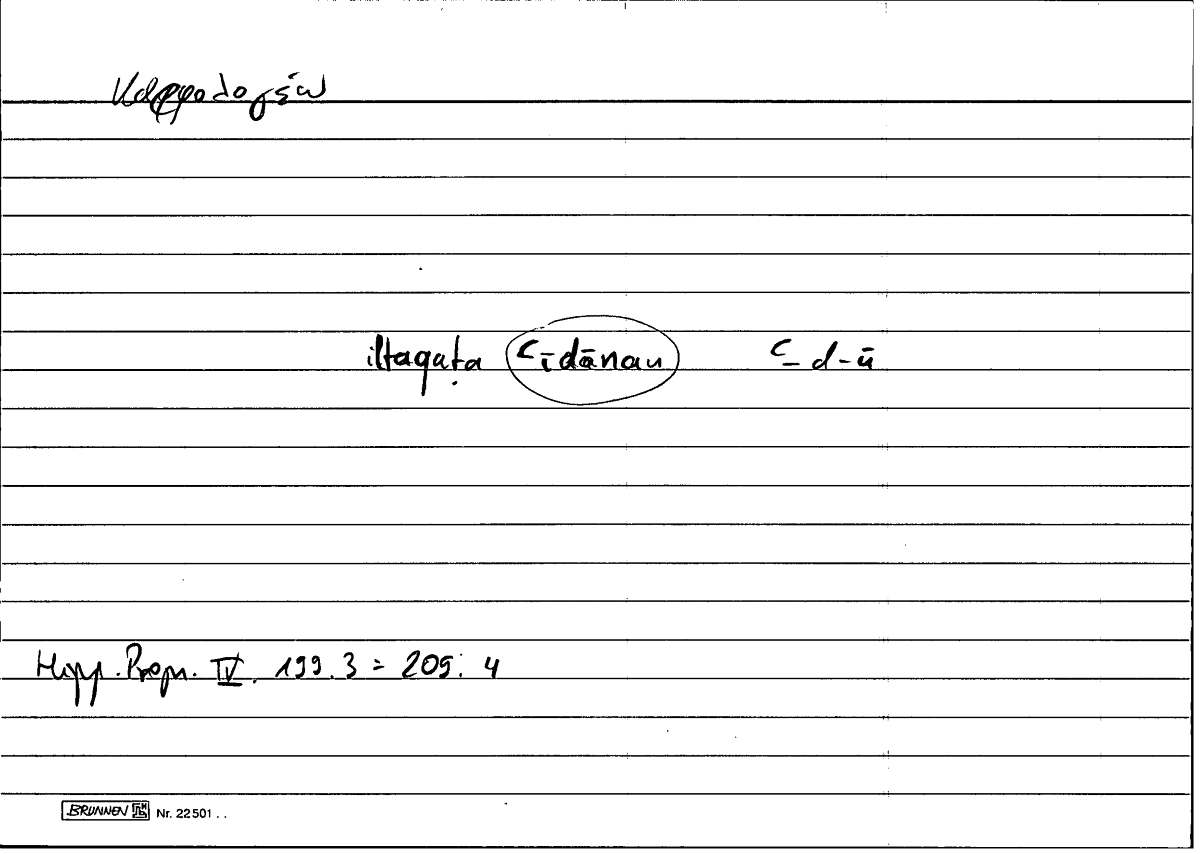 καρφολογέω
iltaqaṭa ʿīdānan ʿ-d-ū
Hipp. Progn. IV. 199.3 = 209.4
BRUNNEN Nr. 22501 . .